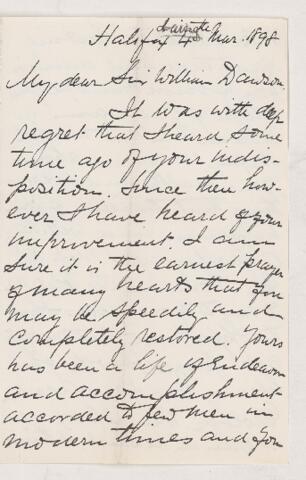 Halifax 4 Mar. 1898
My dear Sir William Dawson,
It was with deep
regret that I heard some
time ago of your indis-
position. Since then how-
ever I have heard of your
improvement. I am
sure it is the earnest prayer
of many hearts that you
may be speedily and
completely restored. Yours
has been a life of Endeavor
and accomplishment
accorded to few men in
modern times and you